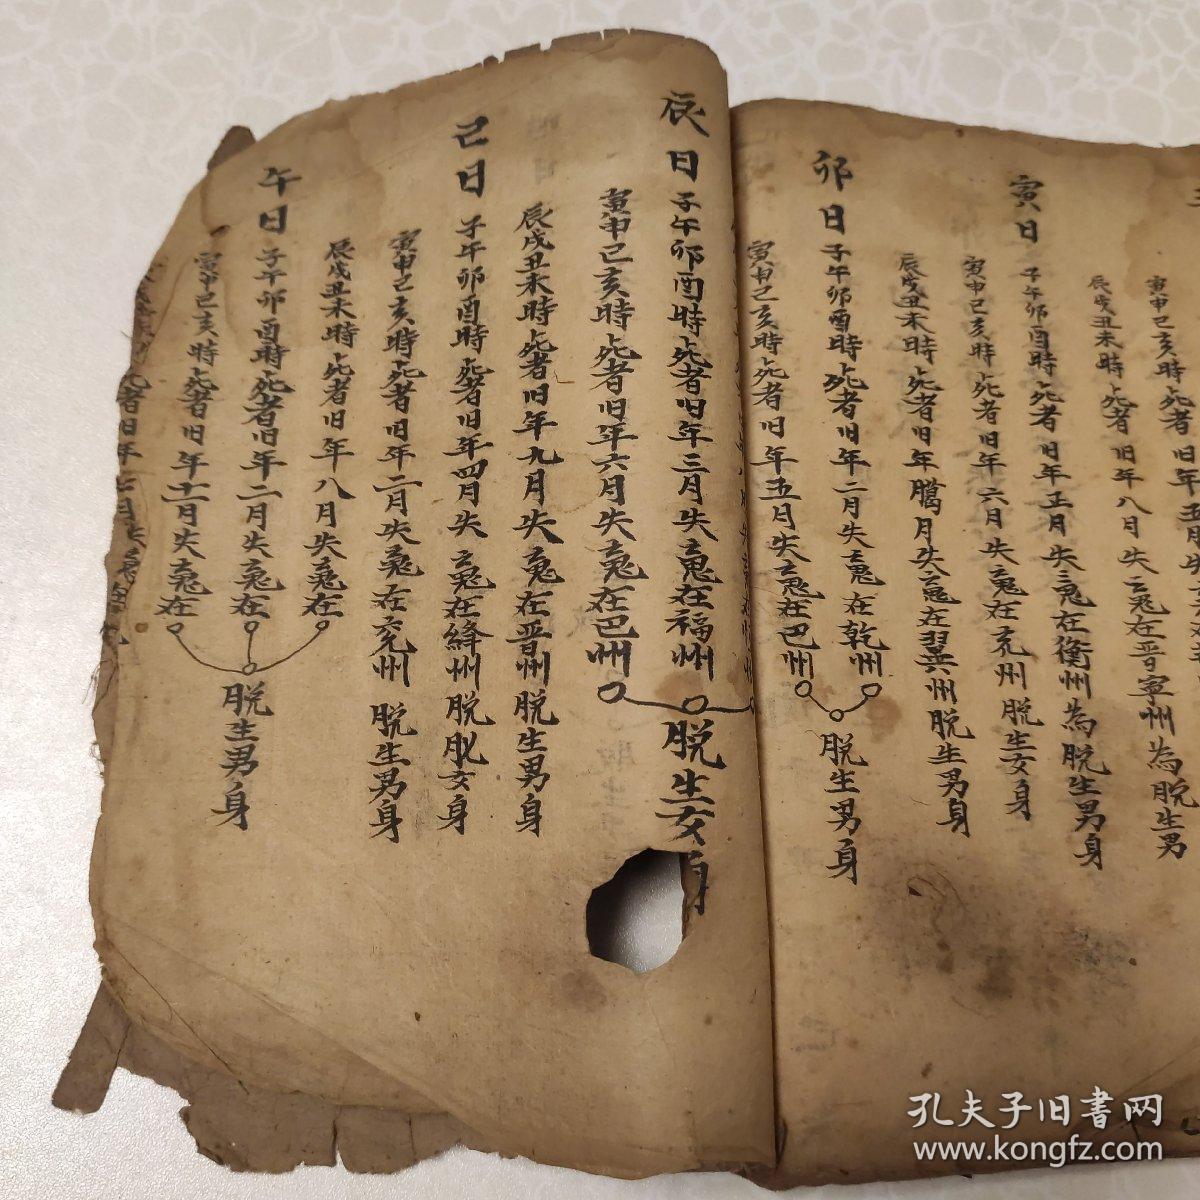 寅申巳亥時死者旧年五月失
辰戌丑未時死者旧年八月失䰟在晋寕州為脱生男
寅日子午卯酉時死者旧年正月失䰟在衡州為脱生男身
寅申巳亥時死者旧年六月失䰟在兖州脱生女身
辰戌丑未時死者旧年臈月失䰟在翼州脱生男身
卯日子午卯酉時死者旧年二月失䰟在乾州
寅申巳亥時死者旧年五月失䰟在巴州
脱生男身
辰日子午卯酉時死者旧年三月失䰟在福州
寅申己亥時死者旧年六月失䰟在巴州
脱生女身
辰戌丑未時死者旧年九月失䰟在晋州脱生男身
己日子午卯酉時死者旧年四月失䰟在絳州脱女身
寅申己亥時死者旧年二月失䰟在兖州脱生男身
辰戌丑未時死者旧年八月失䰟在
午日子午卯酉時死者旧年二月失䰟在
寅申己亥時死者旧年十一月失䰟在
脱生男身
孔夫子旧書网
www.kongfz.com